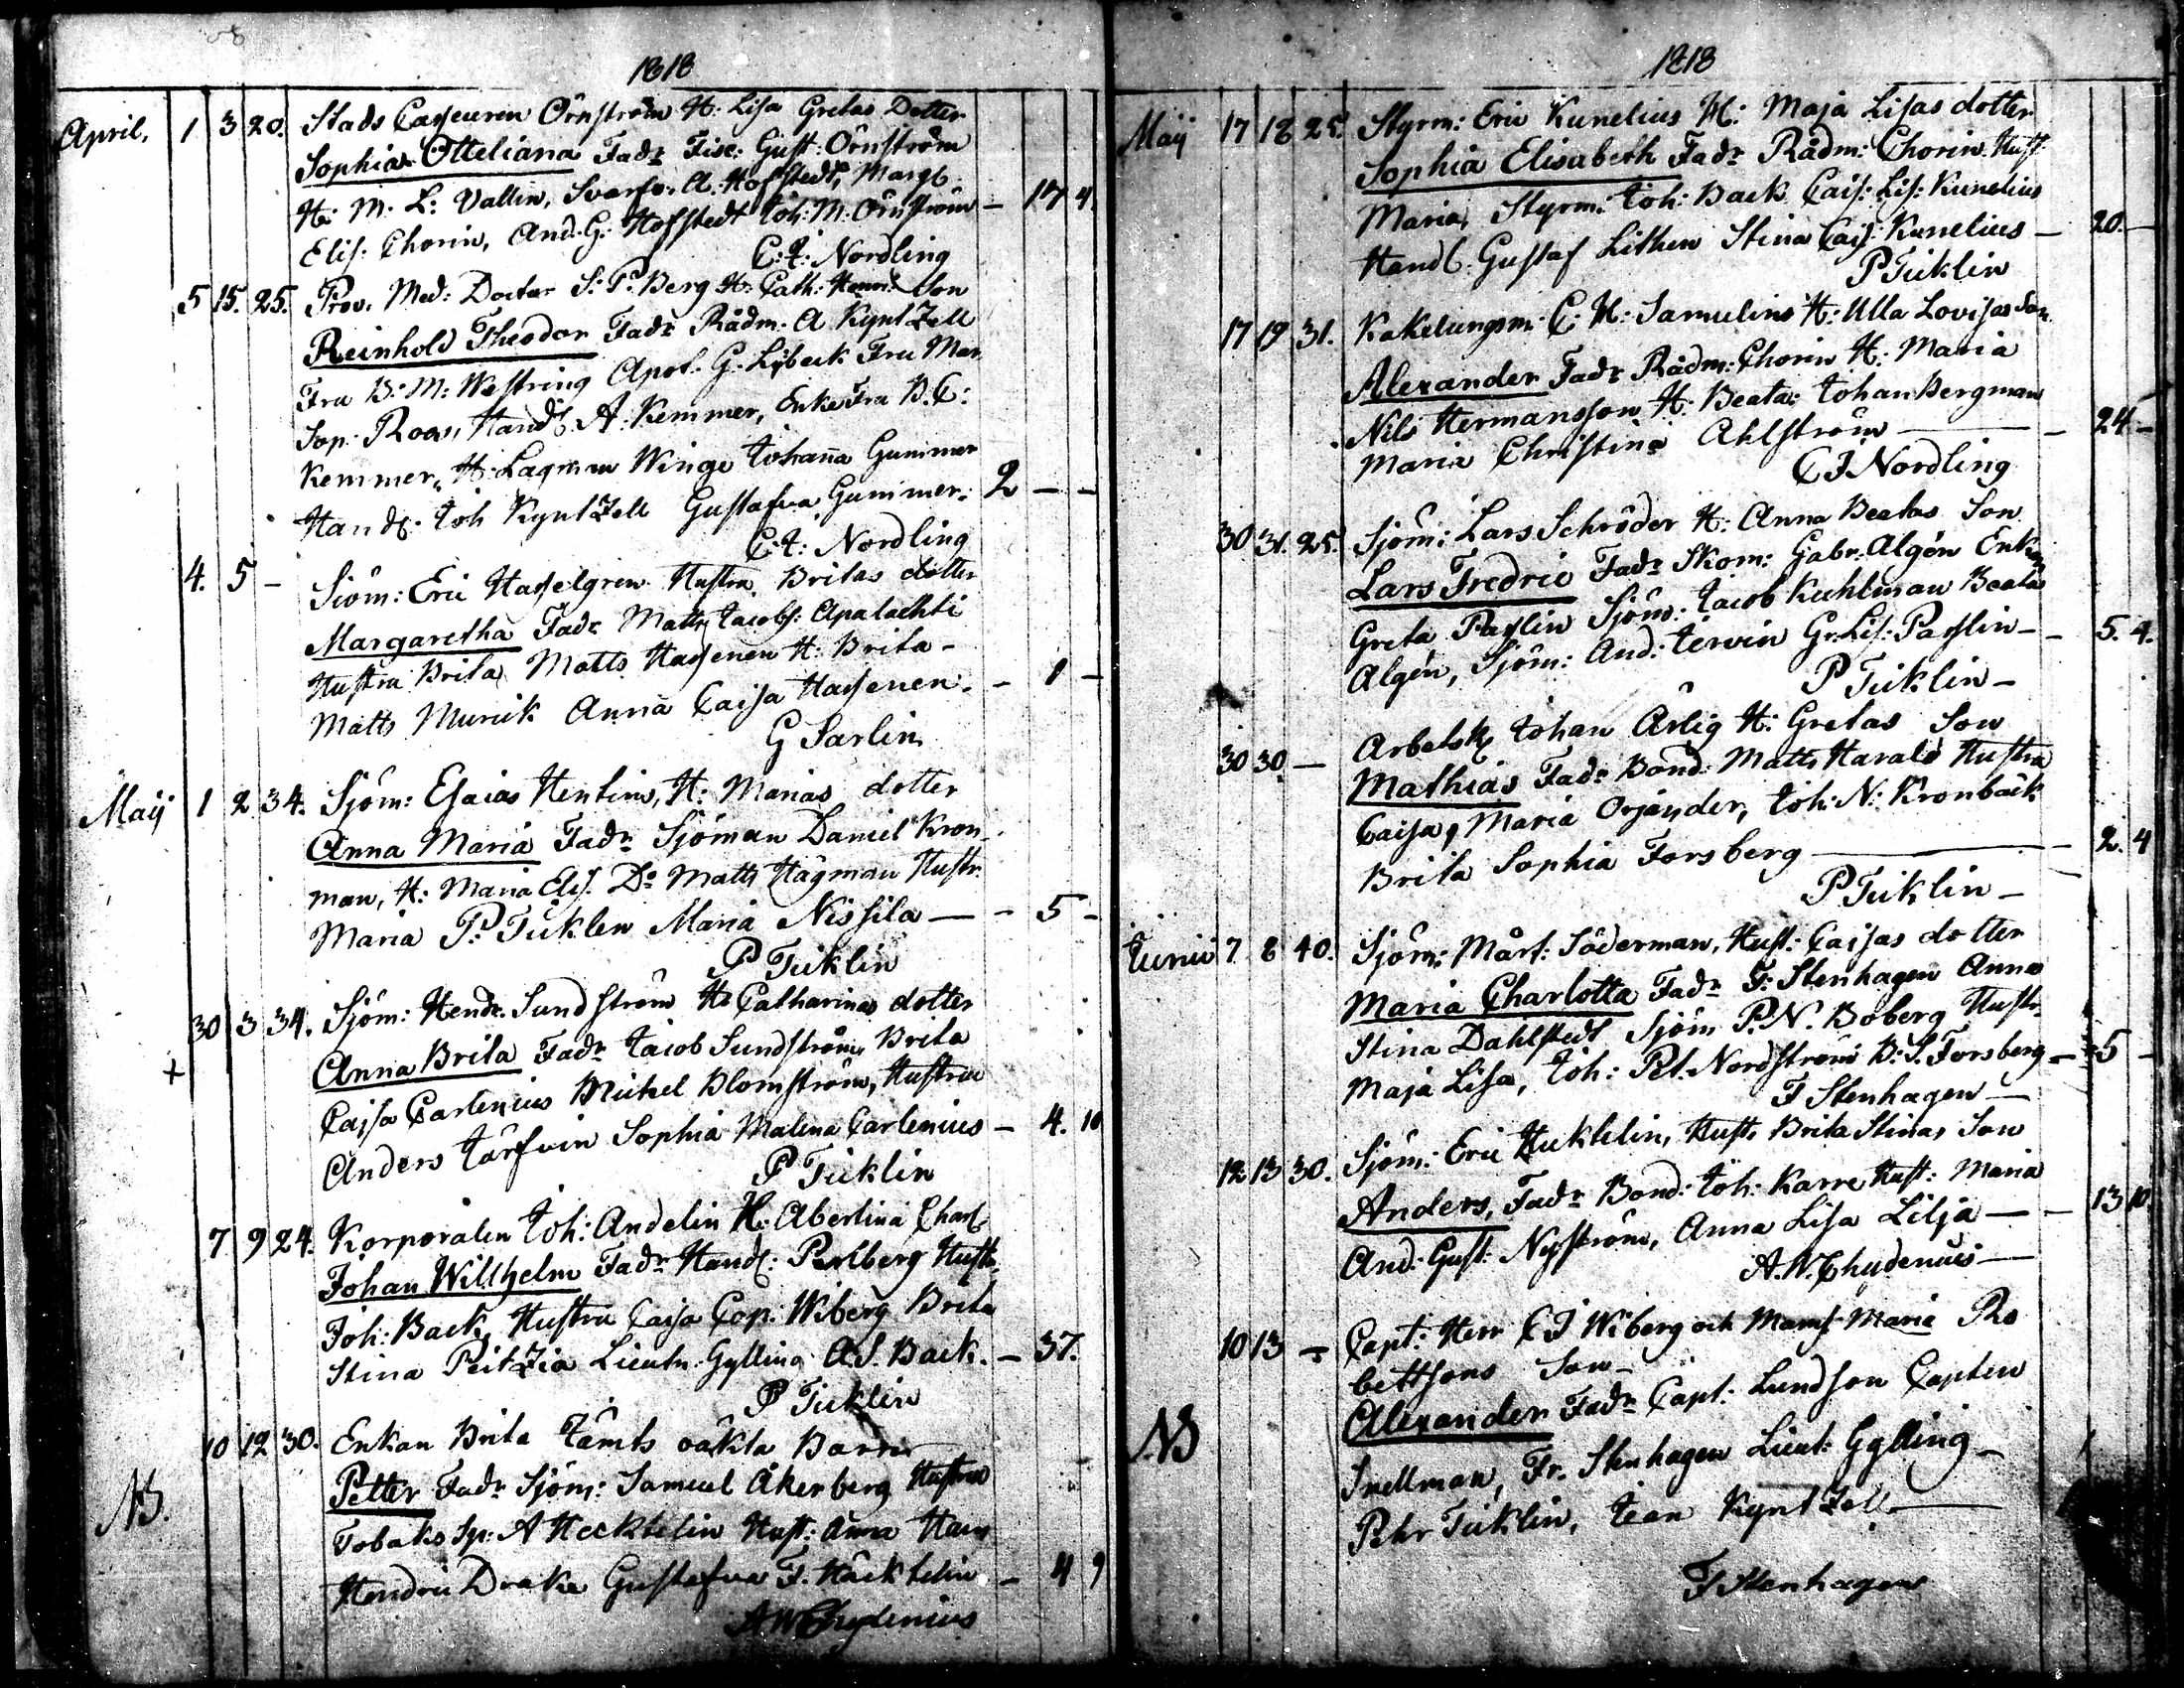 1818
April, 1 3 20. Stads Casseuren Örnström H: Lisa Gretas Dotter
Sophia Otteliana Fadr Fisc: Gust: Örnström
H: M: L: Vallin, Svarfv: A. Hofstedt, Margt.
Elis: Chorin, And: G: Hofstedt Joh: M: Örnström – 17 4.
C: J: Nordling
5 15. 25. Prov. Med: Doctor S: P: Berg H: Cath: Son
Reinhold Theodor Fadr Rådm: A Kyntzell
Fru B: M: Westring Apot. G. Lybeck Fru Mar
Sop: Roos, Handl. A: Kemmer, Enke Fru B. C:
Kemmer, H: Lagman Winge Johanna Gummer
Handl: Joh Kyntzell Gustafva Gummer: 2 – –
C: J: Nordling
4. 5 – Siöm: Eric Hasselgren Hustru Britas dotter
Margaretha Fadr Matts Jacobs: Apalachti
Hustru Brita Matts Hassenen H: Brita –
Matts Murick Anna Caisa Hassenen. – 1 –
G Sarlin
Maij 1 2 34. Sjöm: Esaias Hentins, H: Marias dotter
Anna Maria Fadr Sjöman Daniel Kron-
man, H: Maria Elis. Do Matts Hägman Hustr.
Maria P: Ticklen Maria Nissila – – 5 –
P Ticklin
30 3 34. Sjöm: Hendr. Sundström H: Catharinas dotter
+ Anna Brita Fadr Jacob Sundström Brita
Cajsa Carlenius Michel Blomström, Hustrun
Anders Järfvin Sophia Malena Carlenius – 4. 10
P Ticklin
7 9 24. Korporalen Joh: Andelin H: Abertina Charl.
Johan Willhelm Fadr Handl: Perlberg Hustr.
Joh: Back, Hustru Caisa Cop: Wiberg Brita
Stina Peitzia Lieutn. Gylling A. S. Back. – 37.
P Ticklin
10 12 30. Enkan Brita Jämts oäkta Barn
NB. Petter Fadr Sjöm: Samuel Åkerberg Hustrun
Tobaks Sp: A Heckhelin Hust: Anna
Hendric Drake Gustafva F. Häckhelin – 4 9
A W Chydenius
1818
Maij 17 18 25. Styrm: Eric Kunelius H: Maja Lisas dotter
Sophia Elisabeth Fadr Rådm: Chorin Hust
Maria, Styrm: Joh: Back Cais: Lis: Kunelius
Handl. Gustaf Lithen Stina Cajs: Kunelius – 20. –
P Ticklin
17 19 31. Kakelungsm: C: H: Samulins H: Ulla Lovisas Son
Alexander Fadr Rådm: Chorin H: Maria
Nils Hermansson H: Beata: Johan Bergman
Maria Christina Ahlström – – 24 –
C J Nordling
30 31. 25. Sjöm: Lars Schröder H: Anna Beatas Son
Lars Fredric Fadr Skom: Gabr. Algén Enkan
Greta Passlin Sjöm: Jacob Kuhlman Beata
Algén, Sjöm: And: Jervin Gr. Lis: Passlin – – 5. 4.
P Ticklin –
30 30. – Arbetsk Johan Ärlig H: Gretas Son
Mathias Fadr Bond: Matts Harald Hustru
Caisa, Maria Orjander, Joh: N: Kronbäck
Brita Sophia Forsberg – – 2. 4
P Ticklin –
Junii 7 8 40. Sjöm: Mårt: Söderman, Hust: Caisas dotter
Maria Charlotta Fadr F: Stenhagen Anna
Stina Dahlstedt Sjöm P. N. Boberg Hustr.
Maja Lisa, Joh: Pet. Nordström B: S. Forsberg – 5 –
F Stenhagen –
12 13 30. Sjöm: Eric Hecktelin, Hust. Brita Stinas Son
Anders, Fadr Bond: Joh: Karre Hust: Maria
And: Gust: Nyström, Anna Lisa Lilja – – 13 10.
A. W. Chydenius –
10 13 – Capt: Herr C J Wiberg och Mams: Maria Ro
bertssons Son –
NB Alexander Fadr Capt: Lundson Capten
Snellman, Fr. Stenhagen Lieut: Gylling –
Pehr Ticklin, Jean Kyntzell –
F Stenhagen